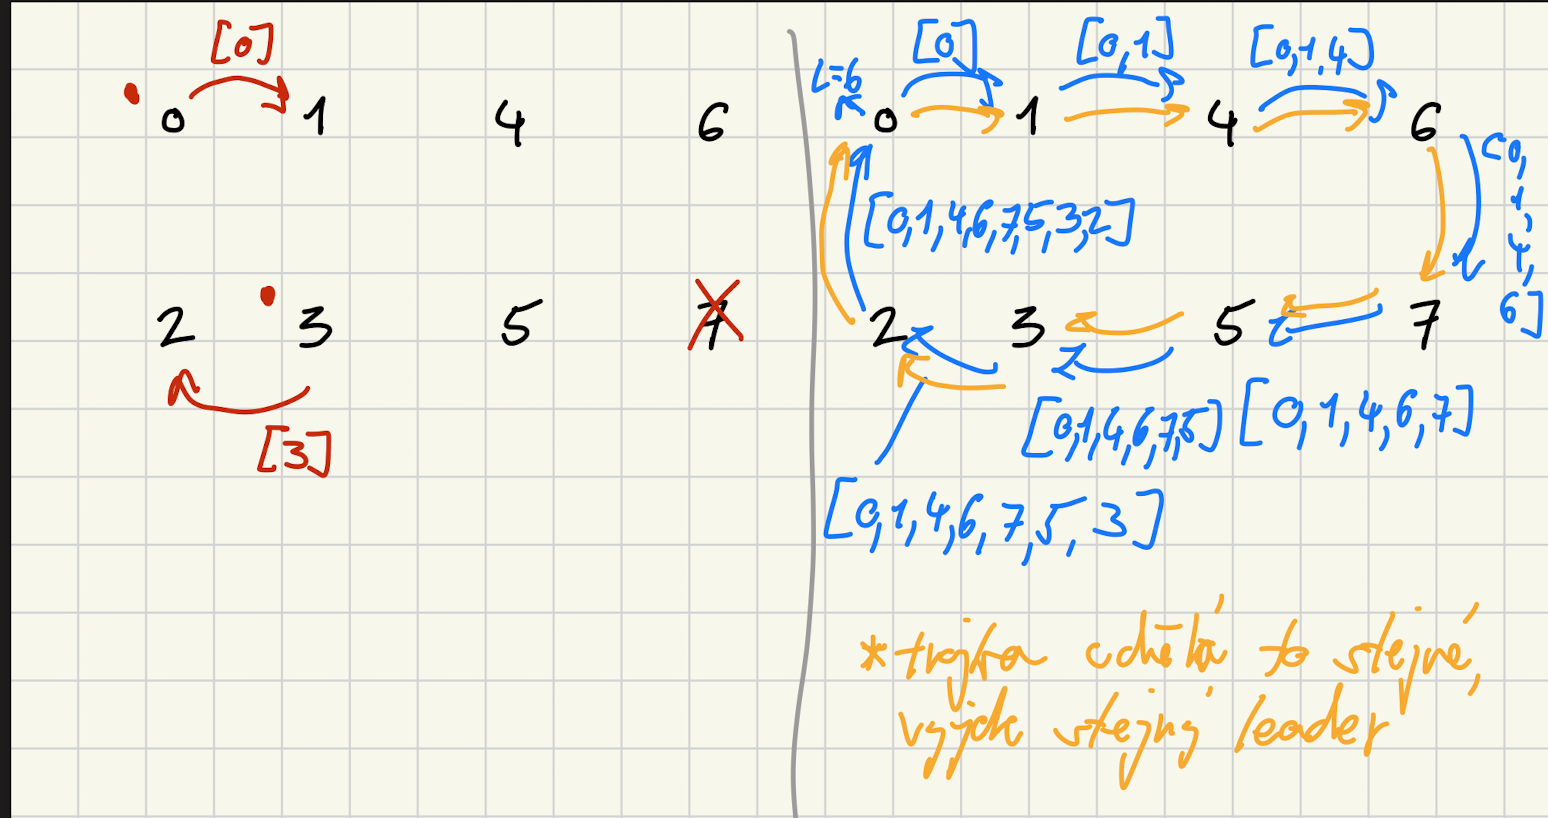 [0]
0 1 4 6
2 3 5 7
[3]
[0] [0,1] [0,1,4]
L=6
0 1 4 6
[0,1,4,6]
[0,1,4,6,7,5,3,2]
2 3 5 7
[0,1,4,6,7,5] [0,1,4,6,7]
[0,1,4,6,7,5,3]
*trojka udělá to stejné,
vyjde stejný leader